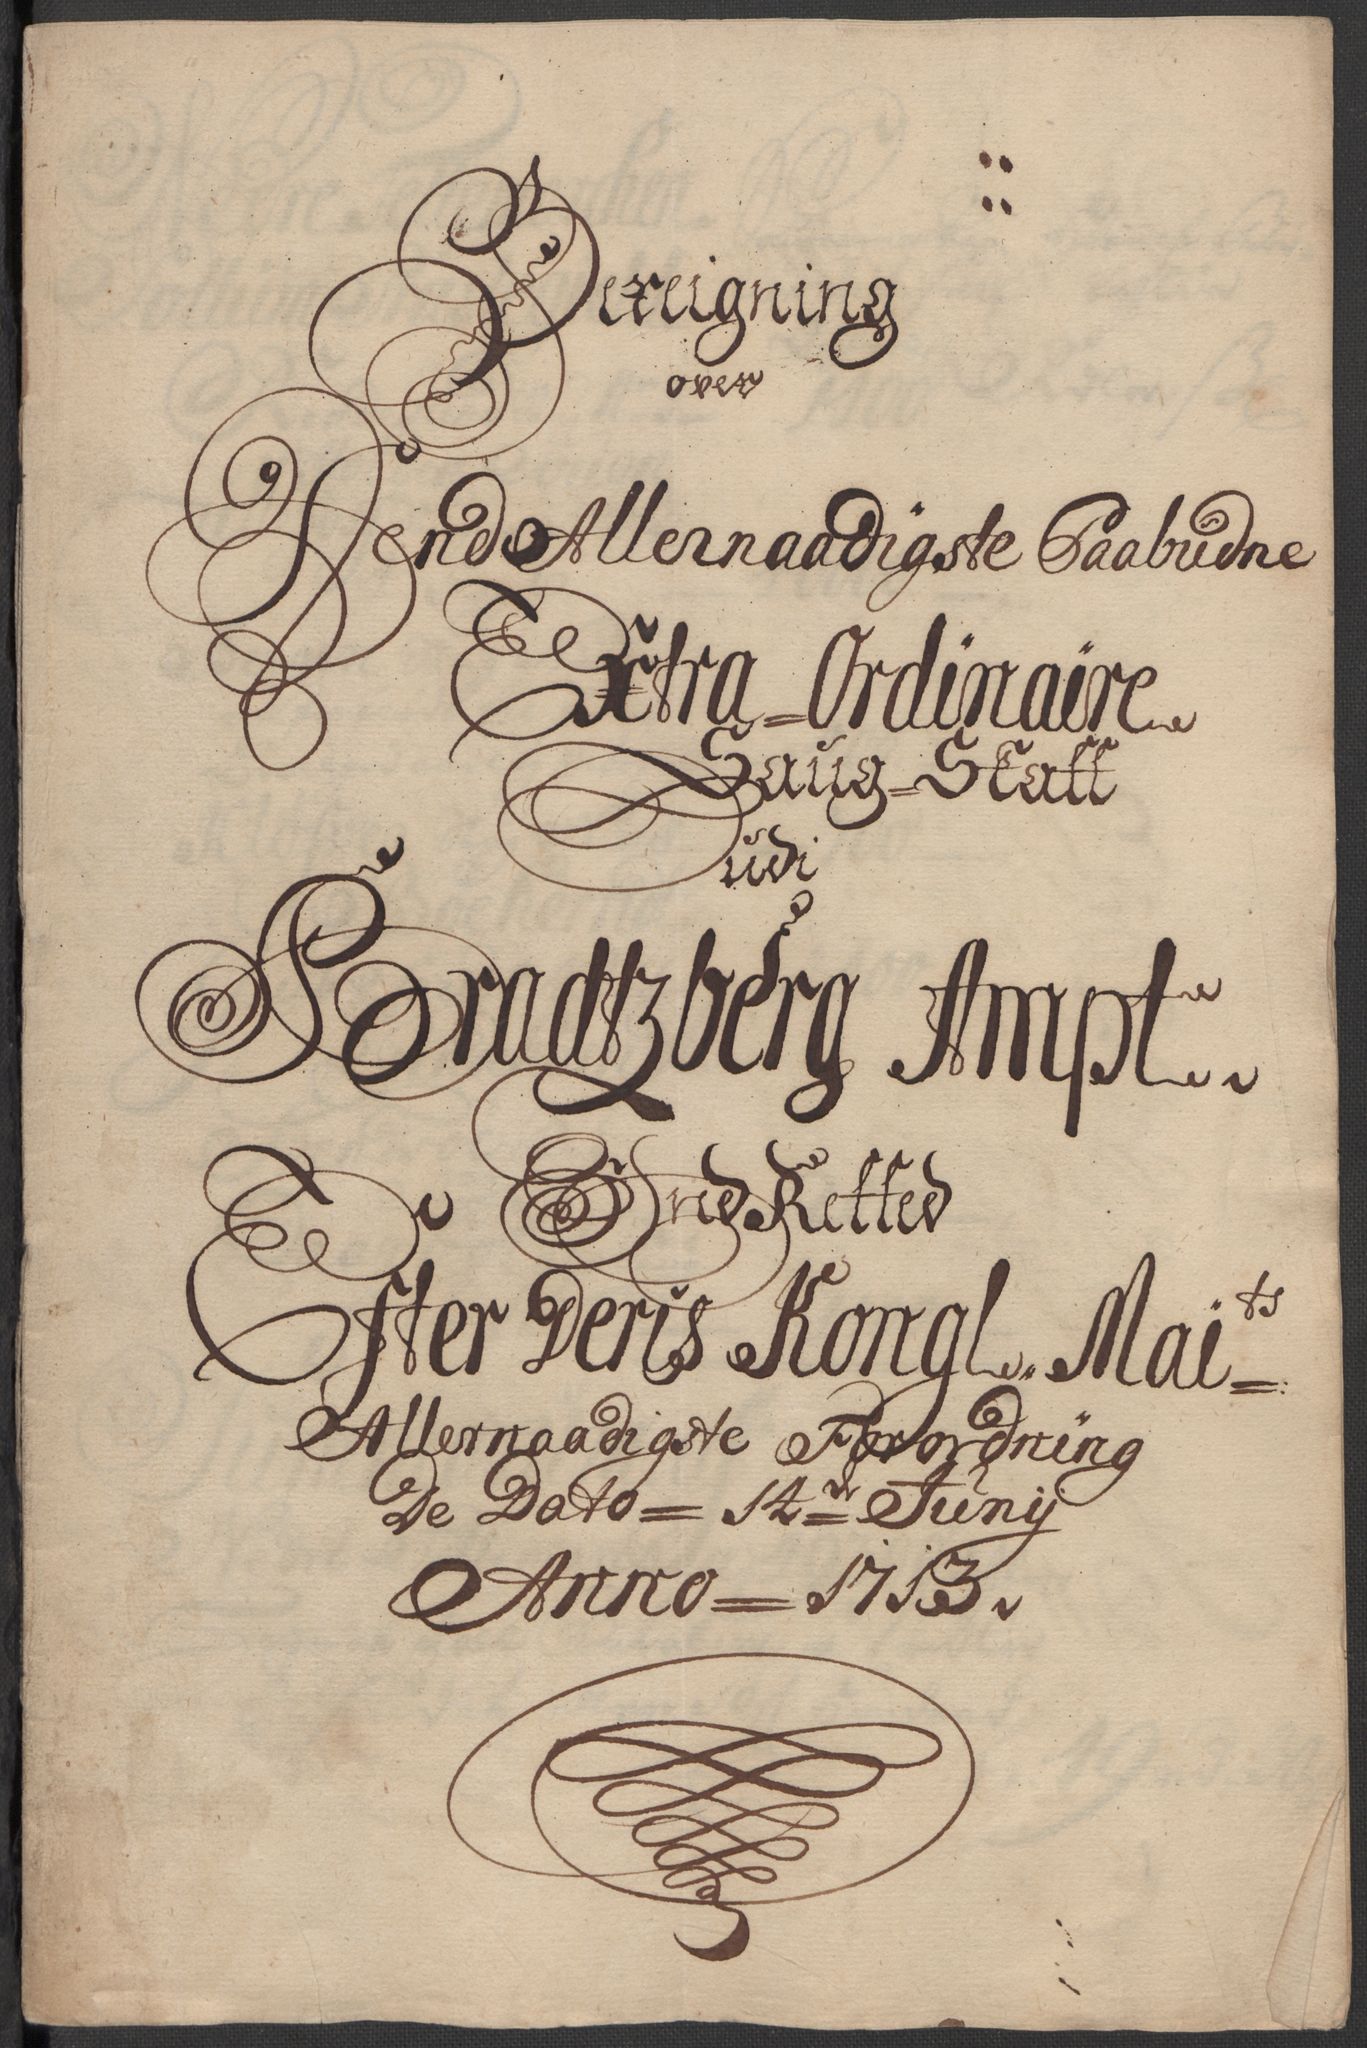 Bereigning
over
Dend Allernaadigste Paabudne
Extra-Ordinaire
Saug-Skatt
udi
Bradtzberg Ampt
IndRetted
Efter Deris Kongl. Maits
Allernaadigste Forordning
De Dato = 14 Junij
Anno = 1713.